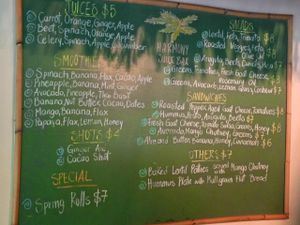 JUICES $5
Carrot, Orange, Ginger, Apple
Beet, Spinach, Orange, Apple
Celery, Spinach, Apple, Cucumber
SMOOTHIES
Spinach, Banana, Flax, Cacao, Apple
Pineapple, Banana, Mint, Ginger
Avocado, Pineapple, Thai Basil
Banana, Nut Butter, Cacao, Dates
Mango, Banana, Flax
Papaya, Flax, Lemon, Honey
SHOTS $4
Ginger
Cacao Shot
SPECIAL
Spring Rolls $7
HARMONY
JUICE BAR
SALADS
Lentil, Feta, Tomato $8
Roasted Veggies, Feta
Arugula, Beets,
Greens, Tomatoes, Fresh Goat Cheese
Rosemary Oil
Greens, Avocado,
SANDWICHES
Roasted Pepper, Aged Goat Cheese, Tomatoes $8
Hummus, Pesto, Arugula, Beets $7
Fresh Goat Cheese, Tomato Salsa, Greens, Honey $8
Avocado, Mango Chutney, Greens $8
Almond Butter, Banana, Honey, Cinnamon $6
OTHERS $7
Baked Lentil Patties served with Mango Chutney
Hummus Plate with Multigrain Flat Bread